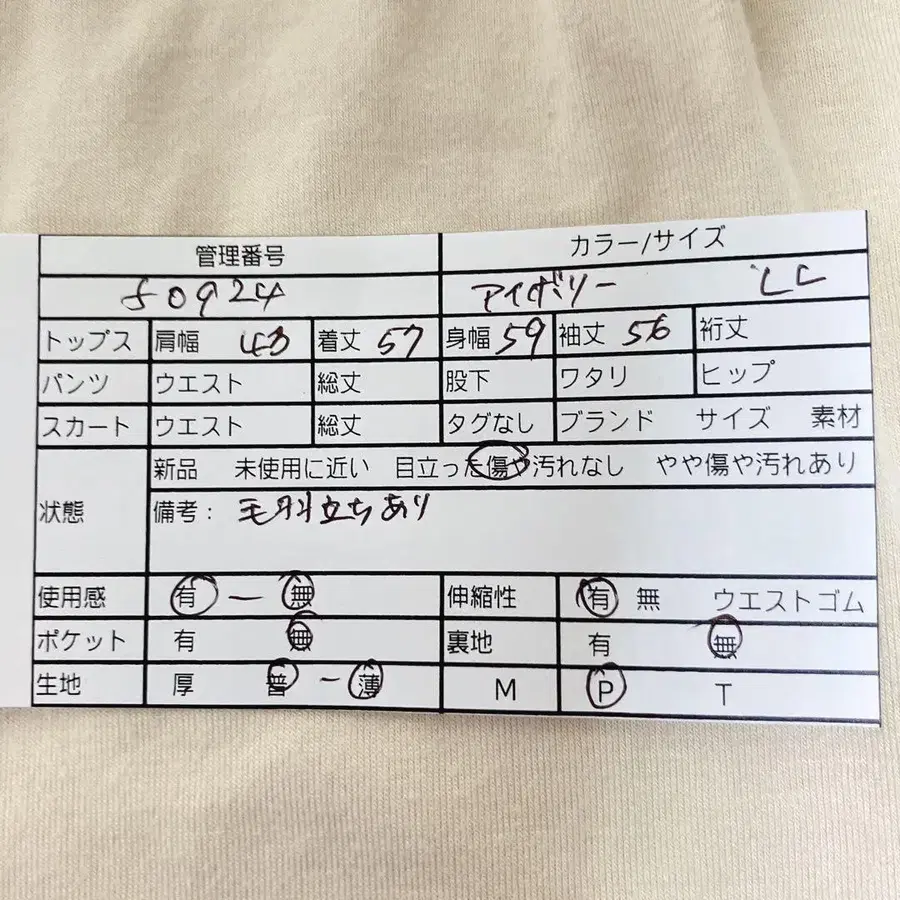 管理番号 カラー/サイズ
50924 アイボリー LL
トップス 肩幅 43 着丈 57 身幅 59 袖丈 56 裄丈
パンツ ウエスト 総丈 股下 ワタリ ヒップ
スカート ウエスト 総丈 タグなし ブランド サイズ 素材
新品 未使用に近い 目立った傷や汚れなし やや傷や汚れあり
状態 備考: 毛羽立ちあり
使用感 有 ー 無 伸縮性 有 無 ウエストゴム
ポケット 有 無 裏地 有 無
生地 厚 普 ー 薄 M P T